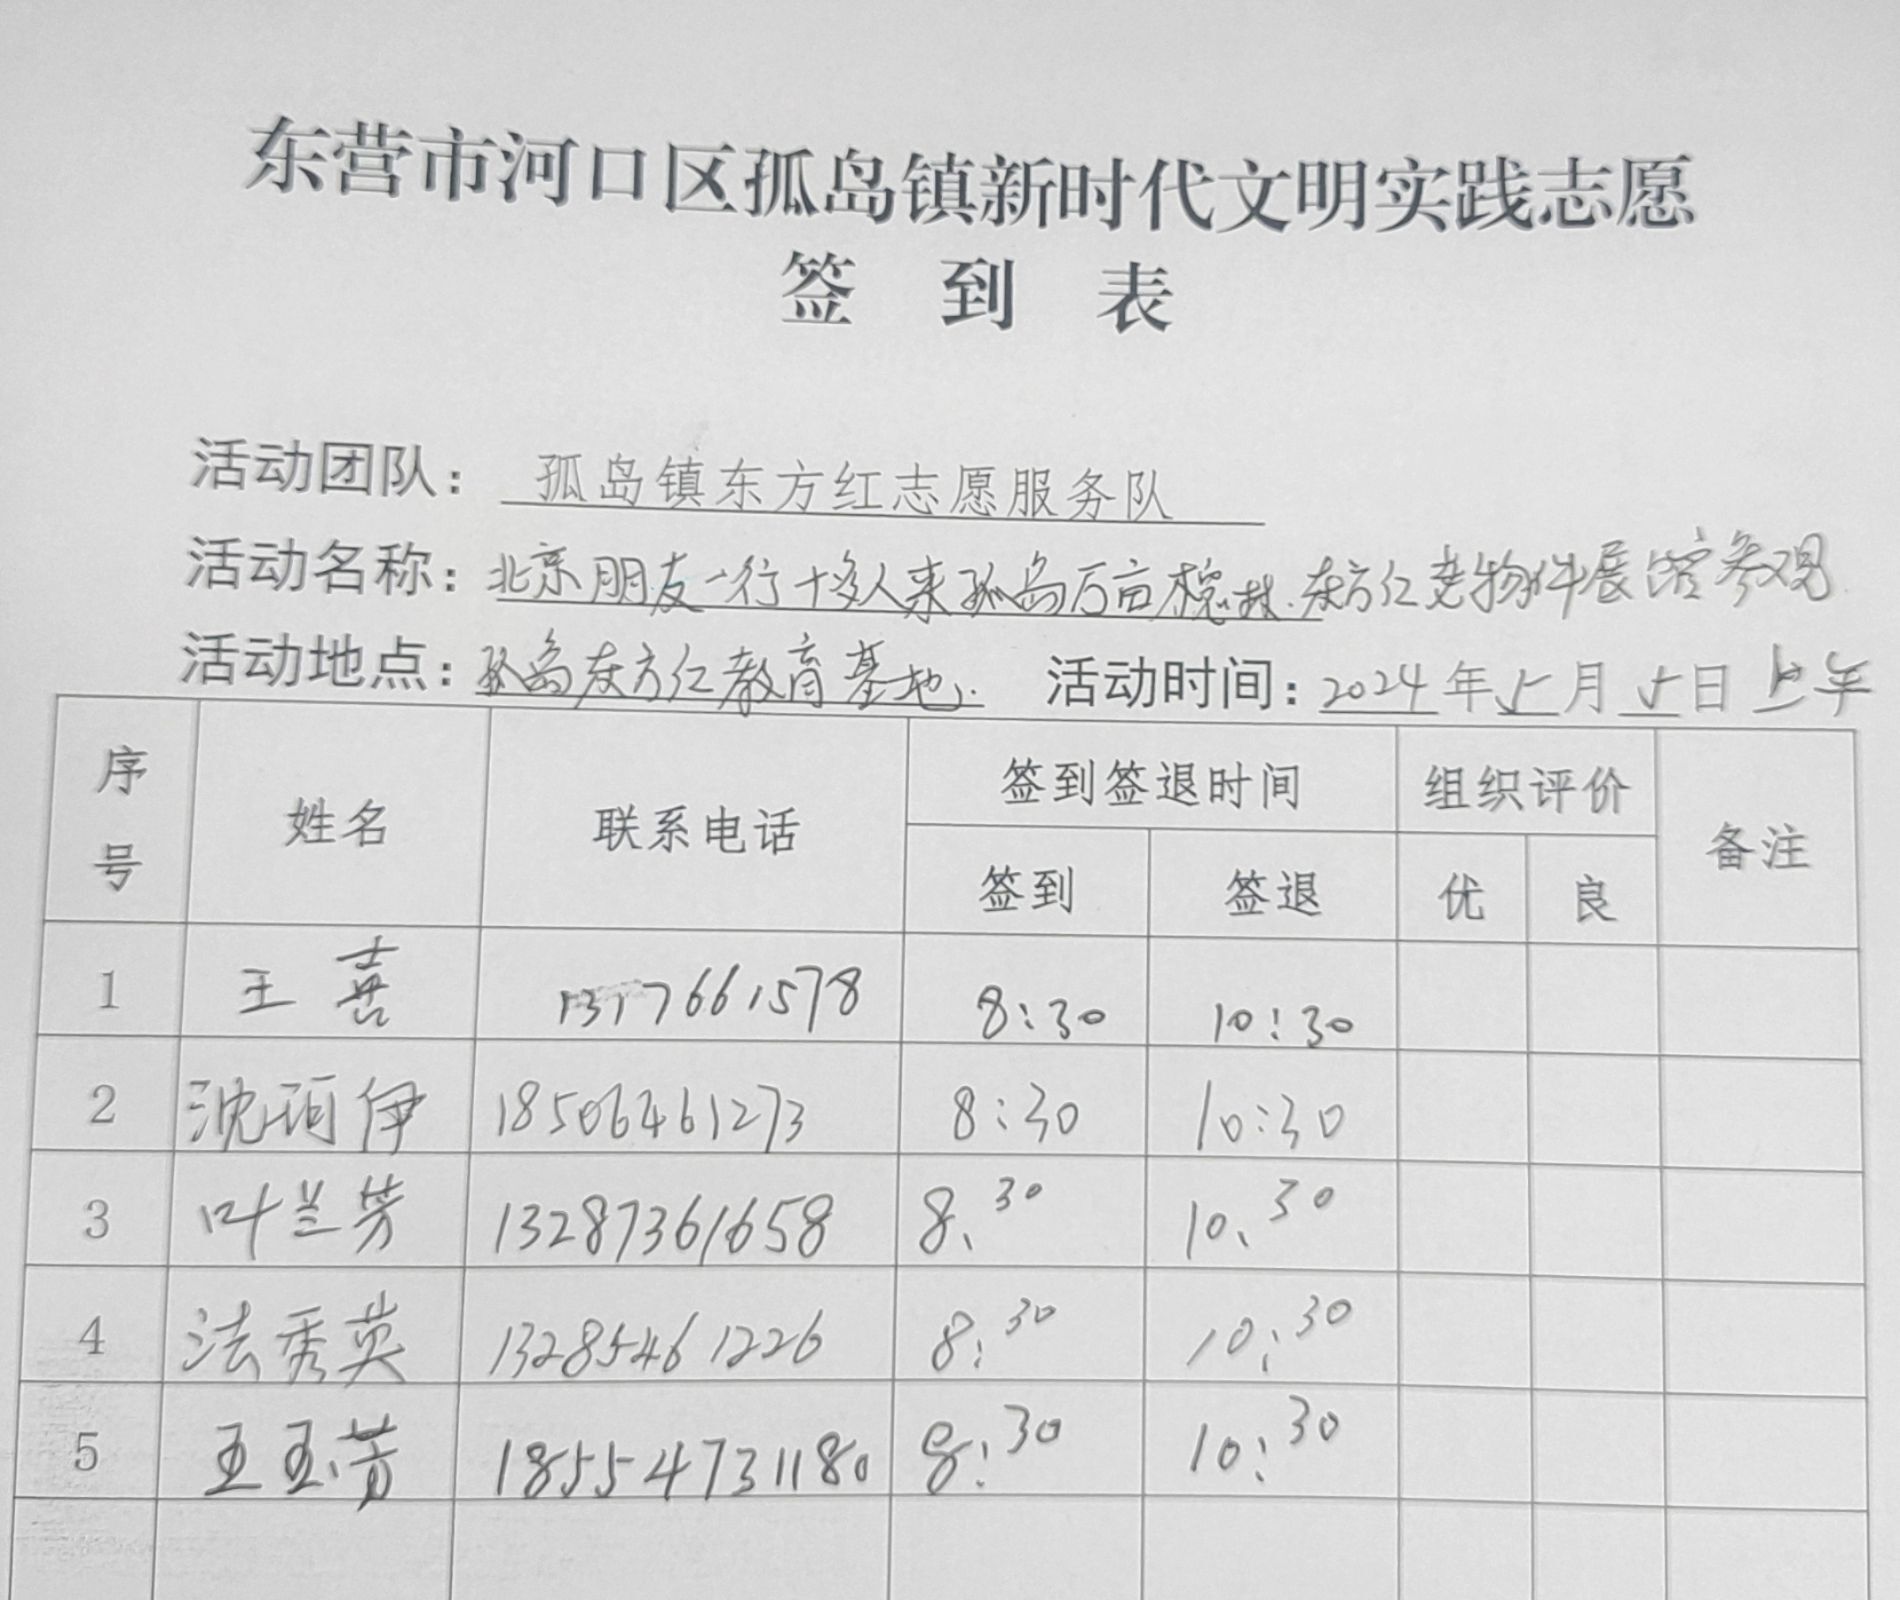 东营市河口区孤岛镇新时代文明实践志愿
签 到 表
活动团队：孤岛镇东方红志愿服务队
活动名称：北京朋友一行十多人来孤岛万亩槐林.东方红老物件展馆参观
活动地点：孤岛东方红教育基地. 活动时间：2024年5月5日上午
序号 姓名 联系电话 签到签退时间 组织评价 备注
签到 签退 优 良
1 王喜 1317661578 8:30 10:30
2 沈珂伊 18506461273 8:30 10:30
3 叶兰芳 13287361658 8、30 10、30
4 法秀英 13285461226 8:30 10:30
5 王玉芳 18554731180 8:30 10:30